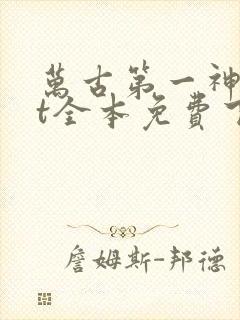 萬古第一神
t全本免費下
詹姆斯-邦德